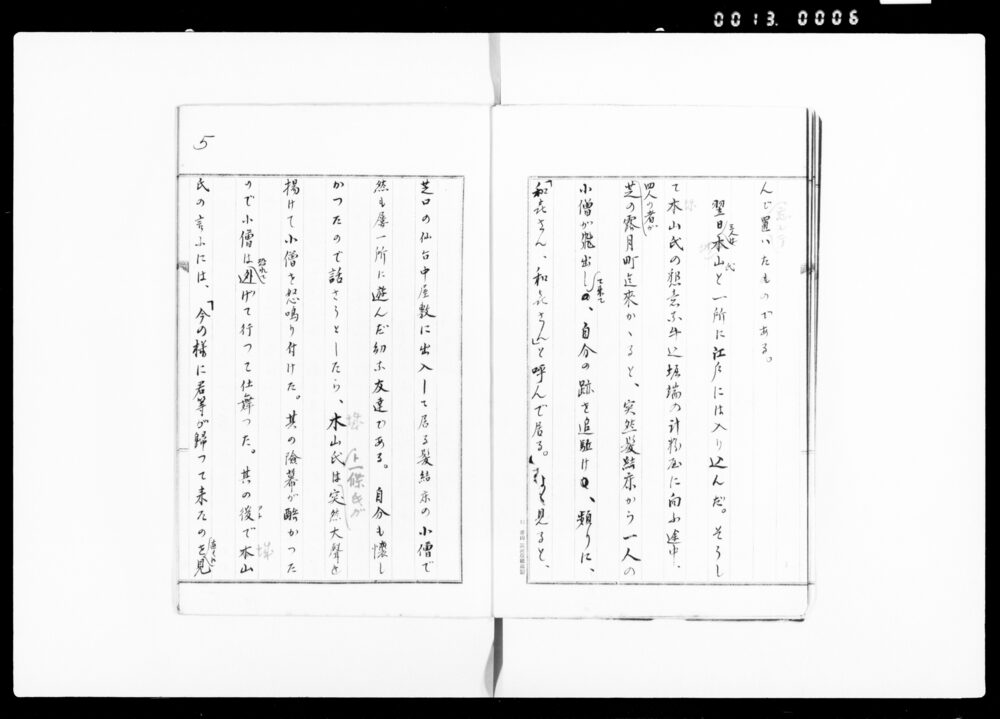 0013.0006
んで置いたものである。
翌日本山氏と一所に江戸には入り込んだ。そうし
て本山氏の懇意な牛込堀端の計物屋に向ふ途中、
四人の者が
芝の露月町迄来かゝると、突然髪結床から一人の
小僧が飛出して来て、自分の跡を追駈け、頻りに、
「和喜さん、和喜さん」と呼んで居る。見ると、
芝口の仙台中屋敷に出入して居る髪結床の小僧で
然も屡一所に遊んだ幼な友達である。自分も懐し
かつたので話さうとしたら、本山氏は突然大聲を
揚げて小僧を怒鳴り付けた。其の険幕が酷かつた
ので小僧は恐れて逃げて行つて仕舞つた。其の後で本山
氏の言ふには、「今の様に君等が歸つて来たのを見
5